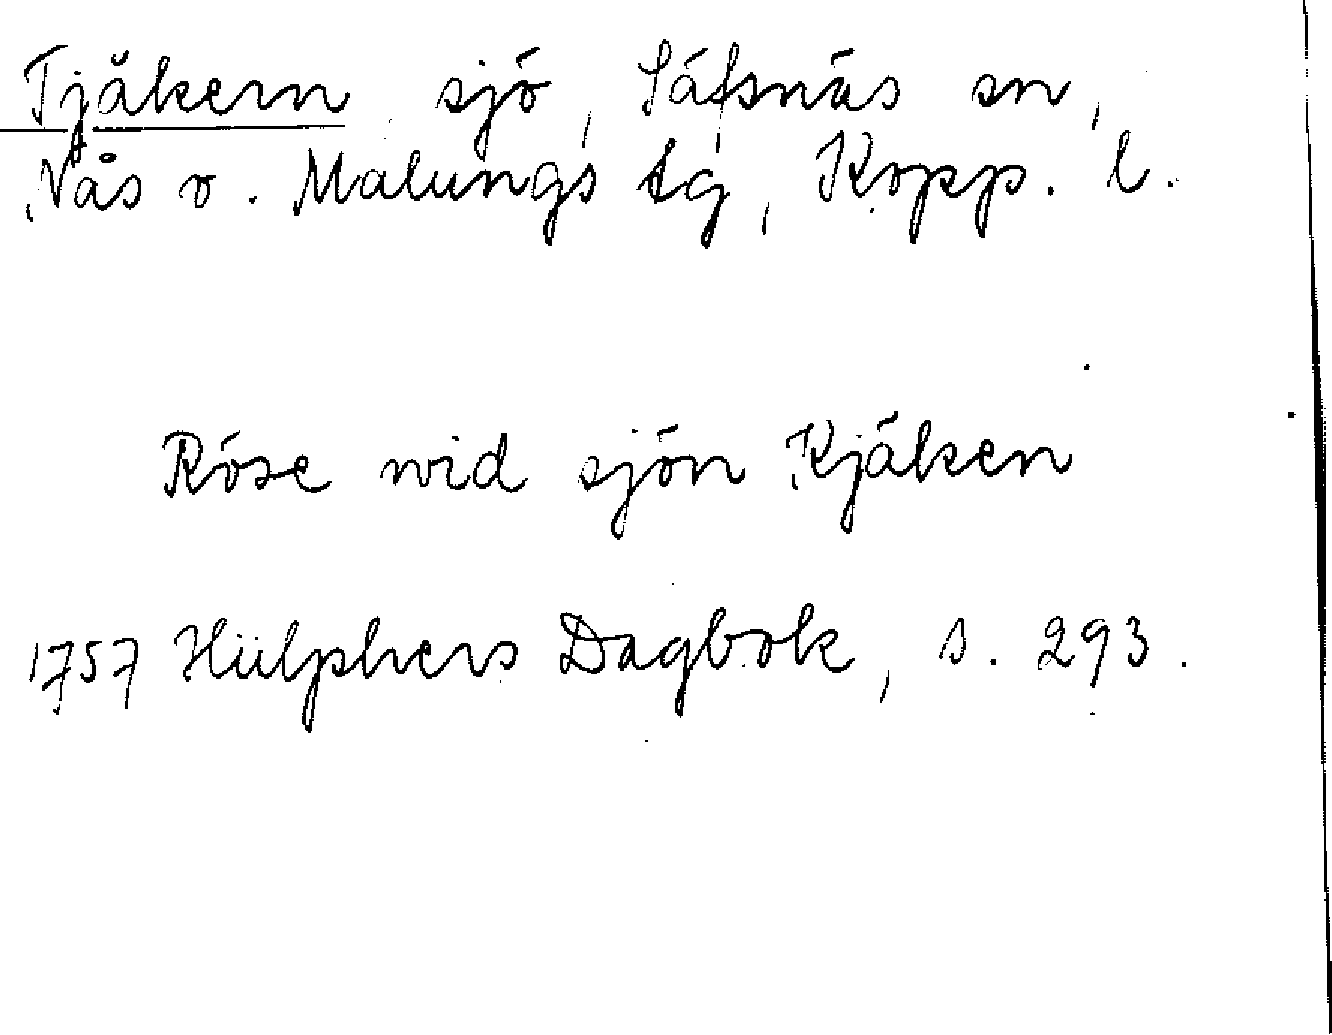 Tjäkern sjö, Säfsnäs sn,
Nås o. Malungs tg, Kopp. l.
Röse wid sjön Kjäken
1757 Hülphers Dagbok, s. 293.